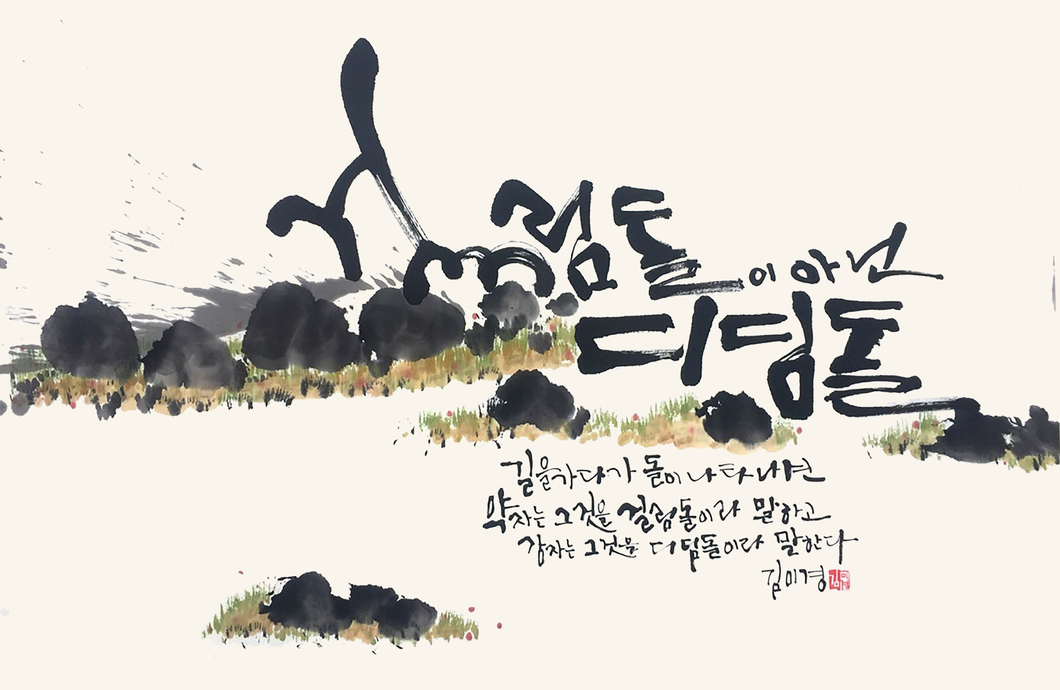 걸림돌이 아닌
디딤돌
길을 가다가 돌이 나타나면
약자는 그것을 걸림돌이라 말하고
강자는 그것을 디딤돌이라 말한다
김미경